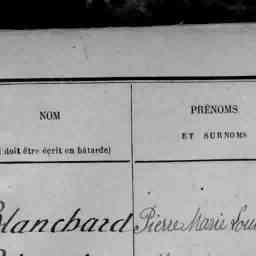 NOM
PRÉNOMS
ET SURNOMS
doit être écrit en bâtarde)
Blanchard Pierre Marie Loui